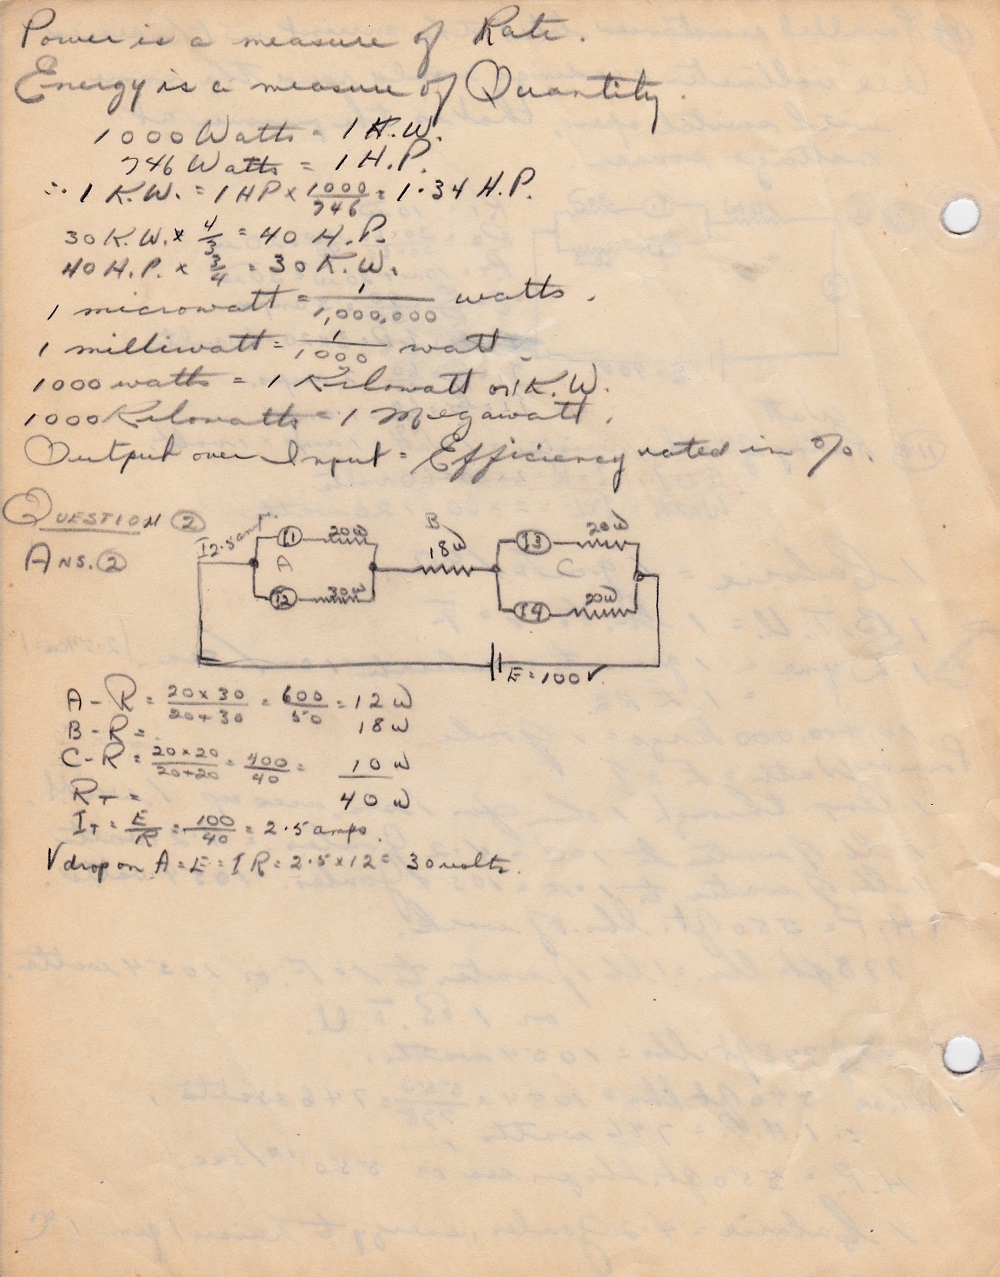 Power is a measure of Rate.
Energy is a measure of Quantity.
1000 Watts = 1 K.W.
746 Watts = 1 H.P.
∴ 1 K.W. = 1 HP × 1000/746 = 1.34 H.P.
30 K.W. × 4/3 = 40 H.P.
40 H.P. × 3/4 = 30 K.W.
1 microwatt = 1/1,000,000 watts.
1 milliwatt = 1/1000 watt.
1000 watts = 1 Kilowatt or 1 K.W.
1000 Kilowatts = 1 Megawatt.
Output over Input = Efficiency rated in %.
QUESTION ②
ANS. ②
I 2.5 amp.
I1 20ω
A
I2 30ω
B
18ω
I3 20ω
C
I4 20ω
E = 100V.
A - R = 20×30/20+30 = 600/50 = 12ω
B - R = 18ω
C - R = 20×20/20+20 = 400/40 = 10ω
RT = 40ω
IT = E/R = 100/40 = 2.5 amps.
V drop on A = E = IR = 2.5×12 = 30 volts.